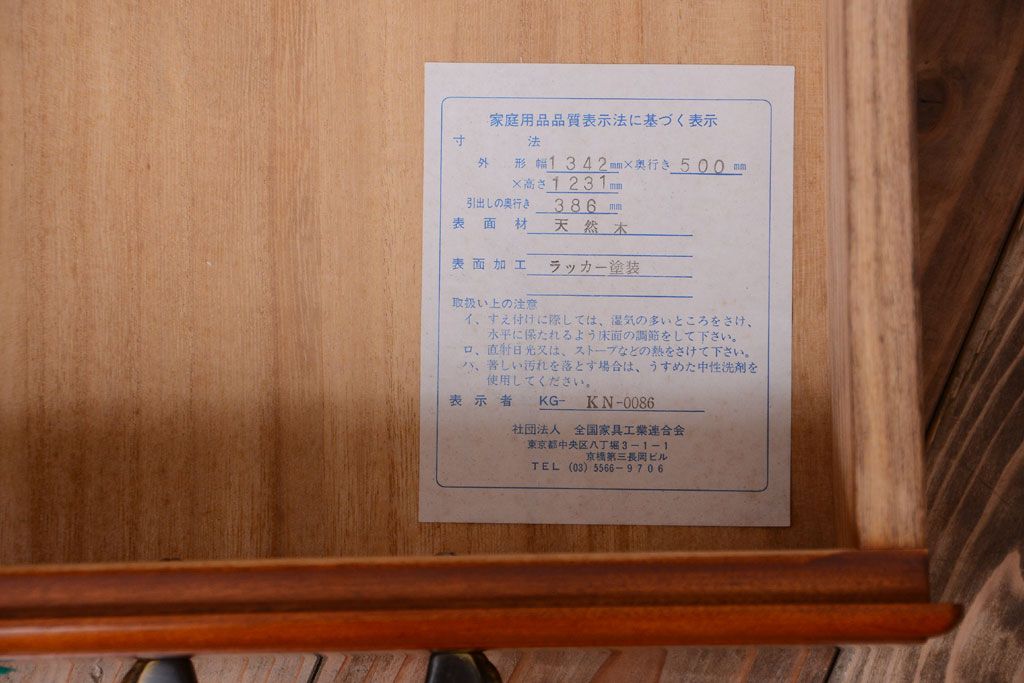 家庭用品品質表示法に基づく表示
寸法
外形 幅1342mm×奥行き500mm
×高さ1231mm
引出しの奥行き 386mm
表面材 天然木
表面加工 ラッカー塗装
取扱い上の注意
イ、すえ付けに際しては、湿気の多いところをさけ、
水平に保たれるよう床面の調節をして下さい。
ロ、直射日光又は、ストーブなどの熱をさけて下さい。
ハ、著しい汚れを落とす場合は、うすめた中性洗剤を
使用してください。
表示者 KG- KN-0086
社団法人 全国家具工業連合会
東京都中央区八丁堀3-1-1
京橋第三長岡ビル
TEL (03) 5566-9706